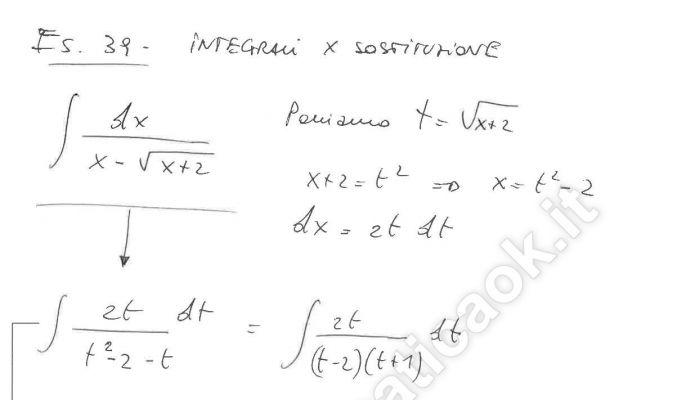 Es. 39 - INTEGRALI X SOSTITUZIONE
∫ dx / (x - √(x+2)) Poniamo t = √(x+2)
x+2 = t² => x = t² - 2
dx = 2t dt
∫ 2t / (t² - 2 - t) dt = ∫ 2t / ((t-2)(t+1)) dt
aticaok.it